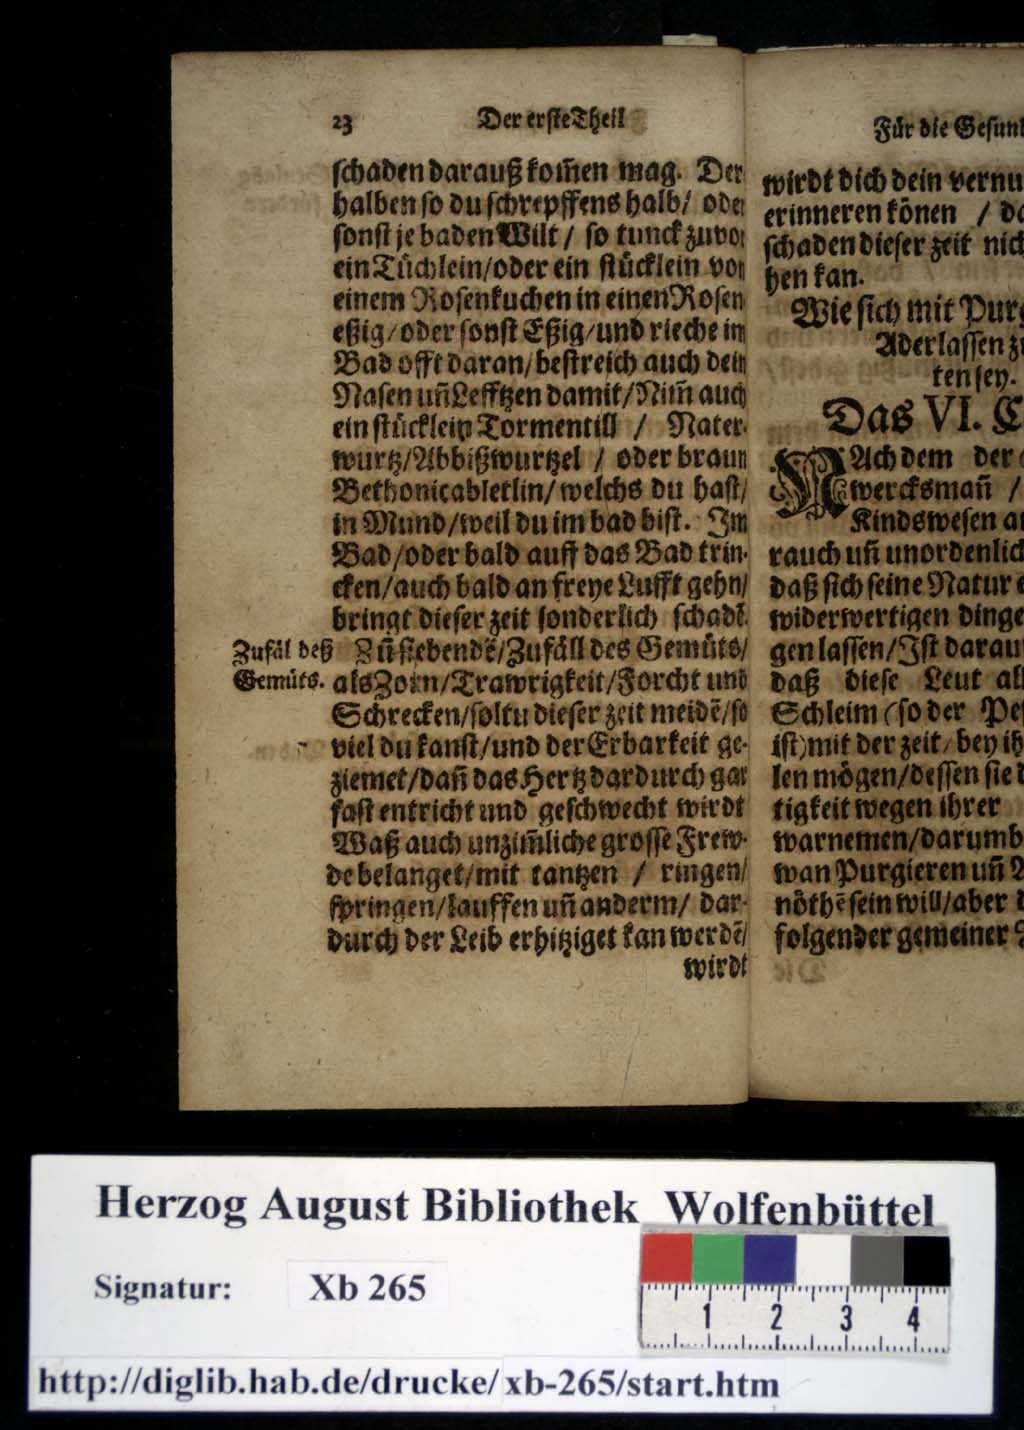 23 Der erste Theil
schaden darauß kom̃en mag. Der
halben so du schrepffens halb/ oder
sonst je baden Wilt / so tunck zuvor
ein Tüchlein/oder ein stücklein von
einem Rosenkuchen in einen Rosen
eßig/oder sonst Eßig/und rieche im
Bad offt daran/bestreich auch dein
Nasen uñ Lefftzen damit/Nim̃ auch
ein stücklein Tormentill / Nater-
wurtz/Abbißwurtzel / oder braun
Bethonicabletlin/welchs du hast/
in Mund/weil du im bad bist. Im
Bad/oder bald auff das Bad trin-
cken/auch bald an freye Lufft gehn/
bringt dieser zeit sonderlich schadẽ.
Zufäl deß
Gemüts.
Zũ siebendẽ/Zufäll des Gemüts/
als Zorn/Trawrigkeit/Forcht und
Schrecken/soltu dieser zeit meidẽ/so
viel du kanst/und der Erbarkeit ge-
ziemet/dañ das Hertz dardurch gar
fast entricht und geschwecht wirdt
Waß auch unzim̃liche grosse Frew-
de belanget/mit tantzen / ringen/
springen/lauffen uñ anderm/ dar-
durch der Leib erhitziget kan werdẽ/
wirdt
Für die Gesun
wirdt dich dein vernu
erinneren können / da
schaden dieser zeit nic
hen kan.
Wie sich mit Purg
Aderlassen zu
ten sey.
Das VI. C
NAch dem der
wercksmañ /
Kindswesen an
rauch uñ unordenlich
daß sich seine Natur
widerwertigen dinge
gen lassen/Ist darau
daß diese Leut al
Schleim (so der Pe
ist) mit der zeit/bey ih
len mögen/dessen sie
tigkeit wegen ihrer
warnemen/darumb
wan Purgieren uñ A
nöthẽ sein will/aber
folgender gemeiner
Herzog August Bibliothek Wolfenbüttel
Signatur: Xb 265
1 2 3 4
http://diglib.hab.de/drucke/xb-265/start.htm